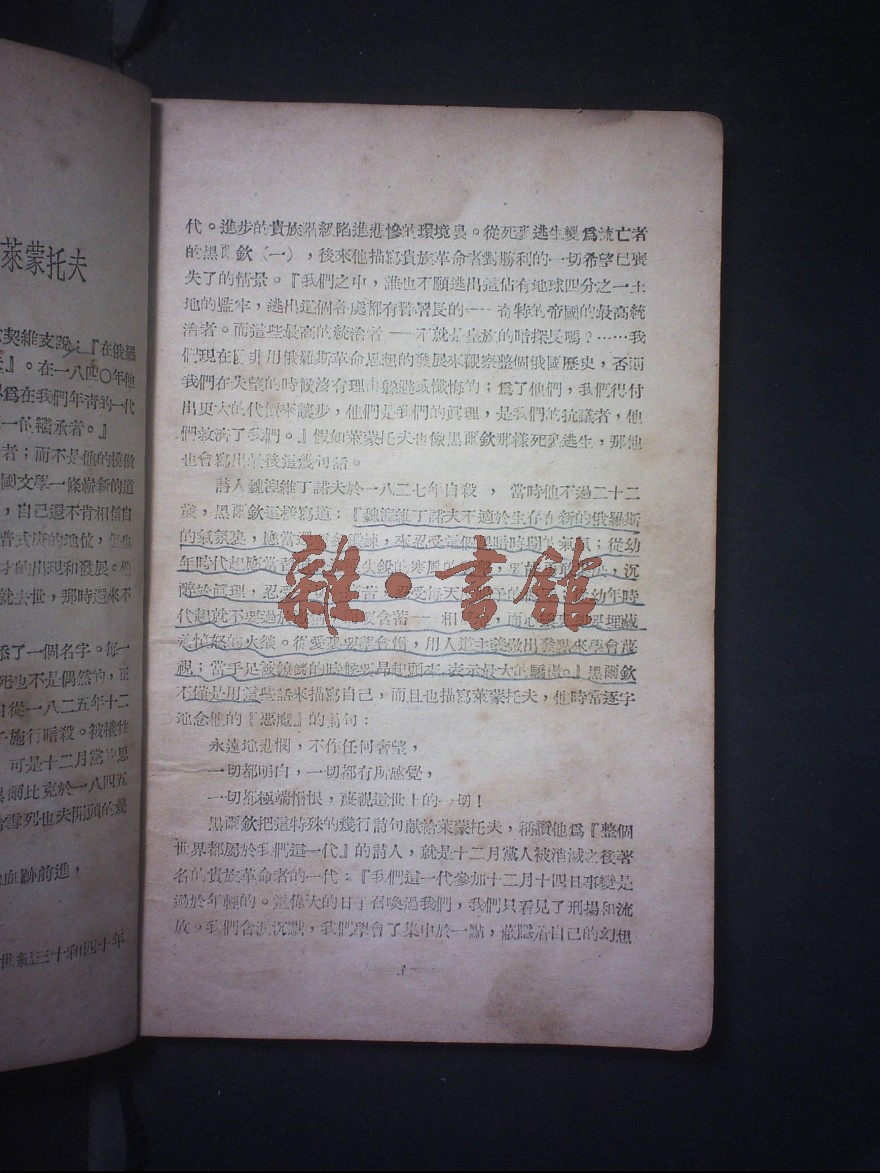 萊蒙托夫
契維支說：『在俄羅
』。在一八四〇年他
爲在我們年青的一代
一的繼承者。』
者；而不是他的模倣
國文學一條嶄新的道
，自己還不肯相信自
普式庚的地位，但也
才的出現和發展。他
就去世，那時還來不
添了一個名字。每一
死也不是偶然的，正
自從一八二五年十二
施行暗殺。被犧牲
可是十二月黨的思
爾比克於一八四五
雪列也夫開頭的幾
血跡前進，
世紀三十和四十年
代。進步的貴族階級陷進悲慘的環境裏。從死裏逃生變爲流亡者
的黑爾欽（一），後來他描寫貴族革命者對勝利的一切希望已喪
失了的情景。『我們之中，誰也不願逃出這佔有地球四分之一土
地的監牢，逃出這個各處都有警署長的——奇特的帝國的最高統
治者。而這些最高的統治者——不就是皇族的暗探長嗎？……我
們現在並非用俄羅斯革命思想的發展來觀察整個俄國歷史，否則
我們在失望的時候沒有理由躲避或懺悔的；爲了他們，我們得付
出更大的代價來讓步，他們是我們的眞理，是我們的抗議者，他
們救濟了我們。』假如萊蒙托夫也像黑爾欽那樣死裏逃生，那他
也會寫出最後這幾句話。
詩人魏湟維丁諾夫於一八二七年自殺，當時他不過二十二
歲，黑爾欽這樣寫道：『魏湟維丁諾夫不適於生存在新的俄羅斯
的氣氛裏，應當 鍛鍊，來忍受這個黑暗時期的氣氛；從幼
年時代起應當習 寒風 沉
醉於眞理，忍受 忍受每天 幼年時
代起就不要過放 含蓄——相 ，而心 埋藏
着憤怒的火燄。從愛裏要學會憎，用人道主義做出發點來學會蔑
視；當手足被鐐銬的時候要昂起頭來，表示最大的驕傲。』黑爾欽
不僅是用這些話來描寫自己，而且也描寫萊蒙托夫，他時常逐字
地念他的『惡魔』的詩句：
永遠地悲憫，不作任何奢望，
一切都明白，一切都有所感覺，
一切都極端憎恨，蔑視這世上的一切！
黑爾欽把這特殊的幾行詩句獻給萊蒙托夫，稱讚他爲『整個
世界都屬於我們這一代』的詩人，就是十二月黨人被消滅之後著
名的貴族革命者的一代：『我們這一代參加十二月十四日事變是
過於年輕的。這偉大的日子召喚過我們，我們只看見了刑場和流
放。我們含淚沉默，我們學會了集中於一點，蔽隱着自己的幻想
雜·書館
3